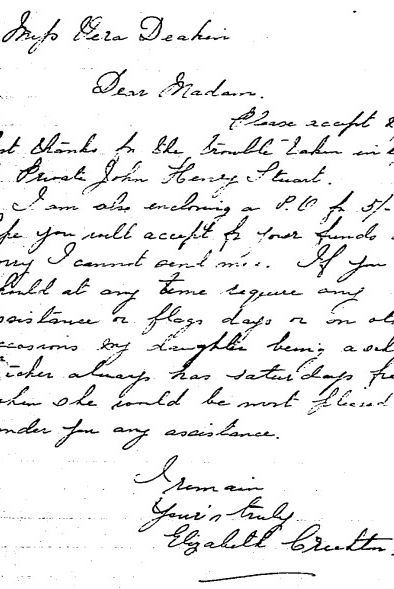 Miss Vera Deakin
Dear Madam.
Please accept
st thanks for the trouble taken in
Private John Henry Stuart.
I am also enclosing a P.O for 5/-
ope you will accept for your funds
orry I cannot send more. If you
hould at any time require any
ssistance on flags days or on ot
ccasions my daughter being a sch
eacher always has saturdays fre
when she would be most pleased
ender you any assistance.
I remain
Your's truly
Elizabeth